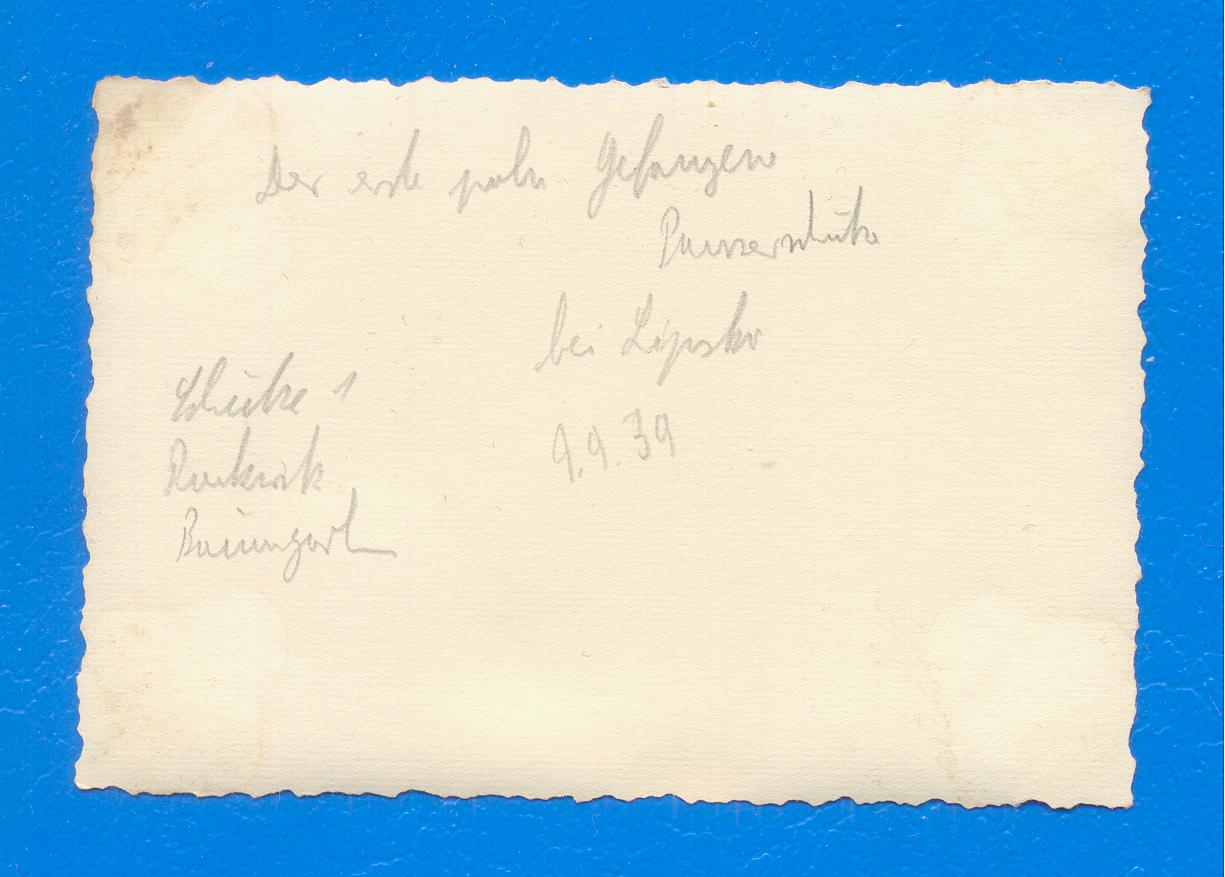 Der erste poln Gefangene
Panzerschütze
bei Lipsko
9.9.39
Schütze 1
Baumgart